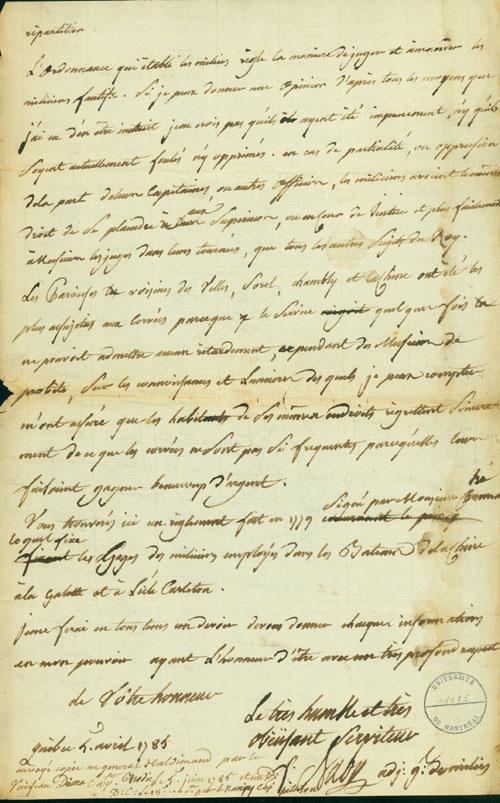 répartition.
L'ordonnance qui établi les milices règle la manière de juger et amander les
miliciens fautifs. Si je peux donner une opinion d'après tous les moyens que
j'ai eu d'en être instruit je ne crois pas qu'ils ayent été impunement, n'y qu'ils
soyent actuellement foulés n'y opprimés. en cas de partialité, ou oppression
de la part de leurs Capitaines ou autres officiers, les miliciens avoient le même
droit de se plaindre à leurs Superieurs, ou en cour de Justice et plus facilement
à Messieurs les juges dans leurs tournées, que tous les autres Sujets du Roy.
Les Paroisses voisines des Villes, Sorel, Chambly et la Chine ont été les
plus assujeties aux Corvées parceque le Service quelques fois
ne pouvoit admettre aucun retardement, cependant des Messieurs de
probité, Sur les connoissances et Lumieres des quels je peux compter
m'ont assuré que les habitants de ces mêmes endroits regrettent Sincere
ment de ce que les corvées ne Sont pas Si frequentes parcequ'elles leurs
faisoient gagner beaucoup d'argent.
Vous trouverés ici un règlement fait en 1779 Signé par Monsieur
lequel fixe les Gages des miliciens employés dans les Bateaux de la Chine
à la Galette et à L'isle Carleton.
je me ferai en tous tems un devoir de vous donner chaques informations
en mon pouvoir ayant L'honneur d'être avec un très profond respect
de Vôtre honneur
Le très humble et très
Obéissant Serviteur
Québec 5 avril 1785
adj. gl. de milices
envoyé copie au general Haldimand par le
5 juin 1785
UNIVERSITÉ
DE MONTRÉAL